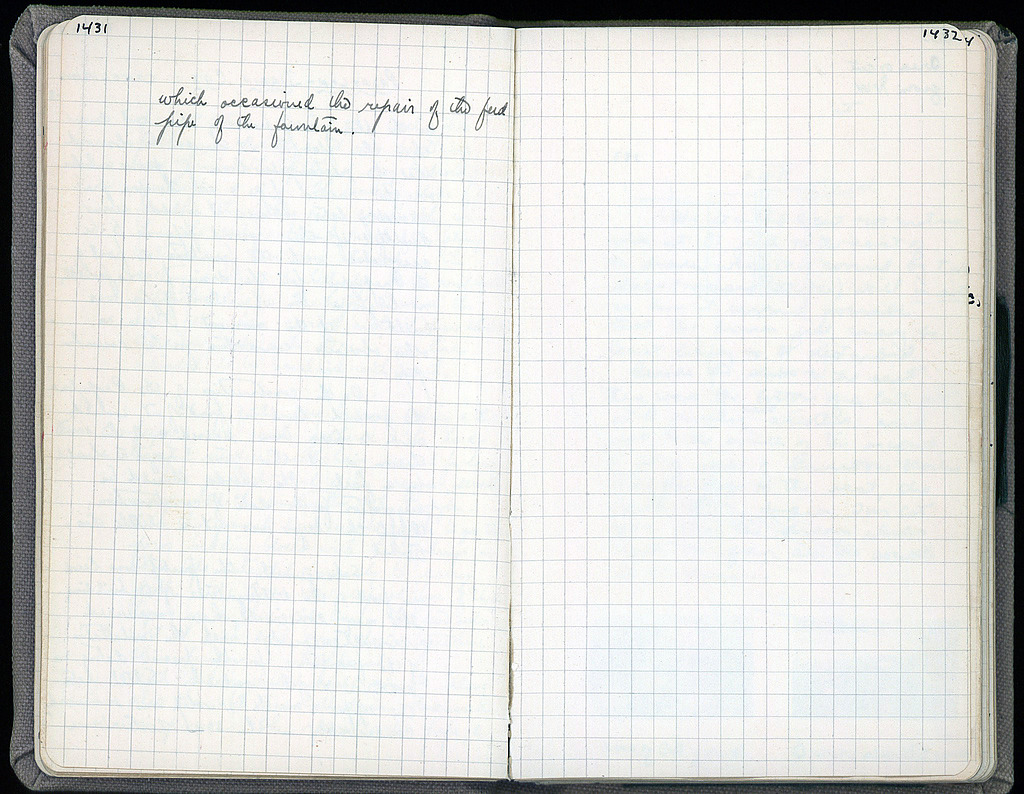 1431
which occasioned the repair of the feed
pipe of the fountain.
1432